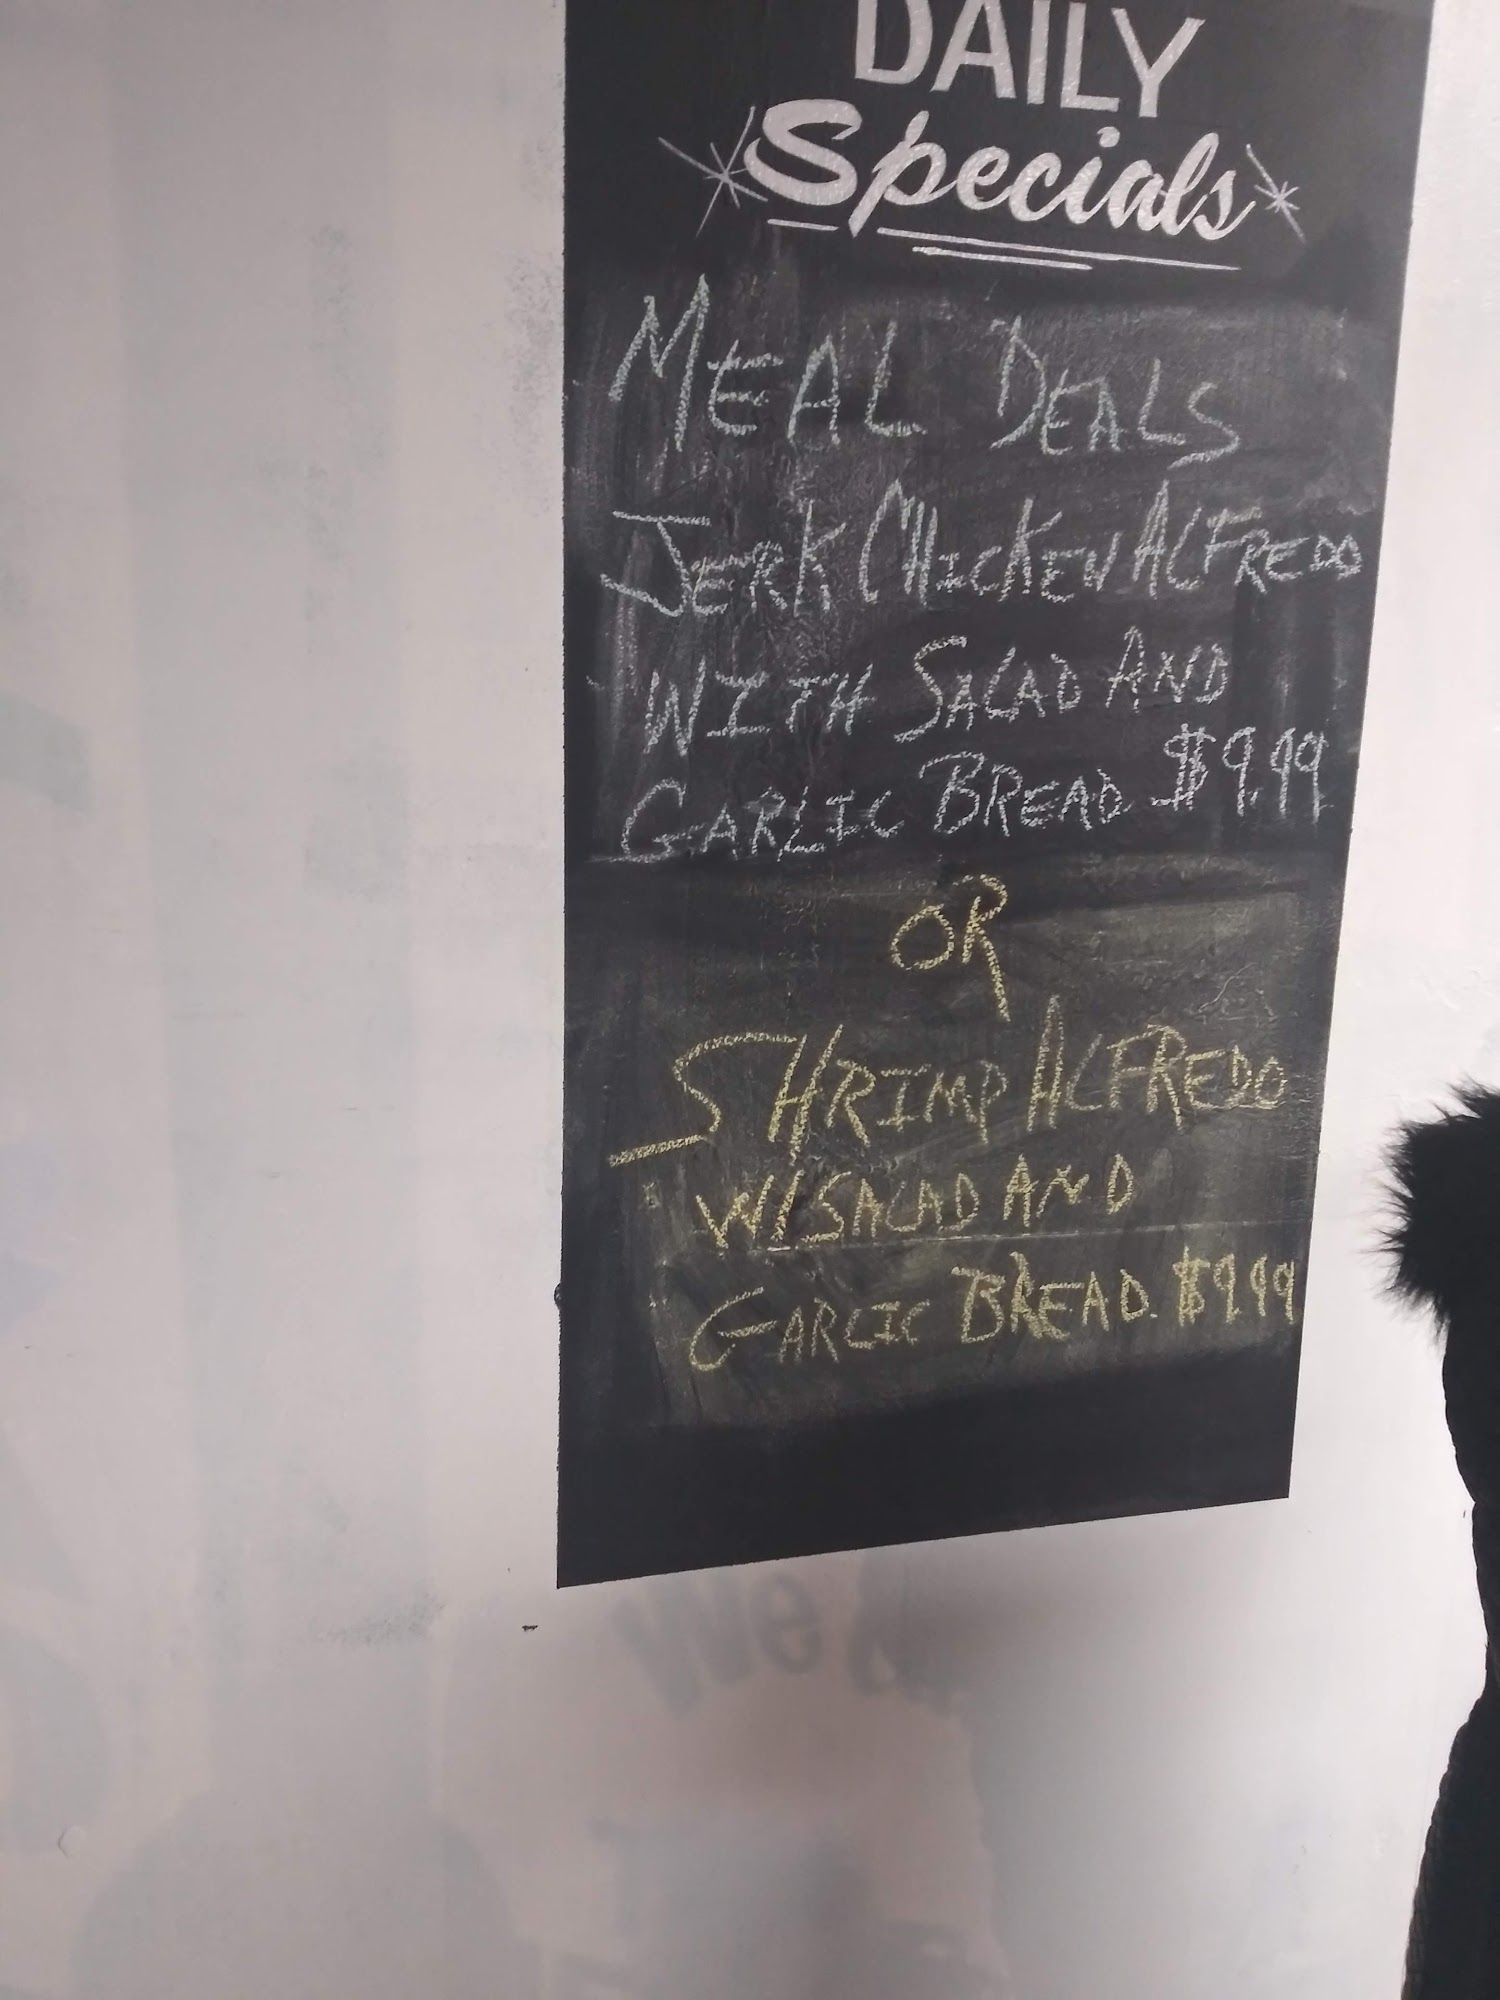 DAILY
Specials
MEAL DEALS
JERK CHICKEN ALFREDO
WITH SALAD AND
GARLIC BREAD $9.99
OR
SHRIMP ALFREDO
W/SALAD AND
GARLIC BREAD. $9.99